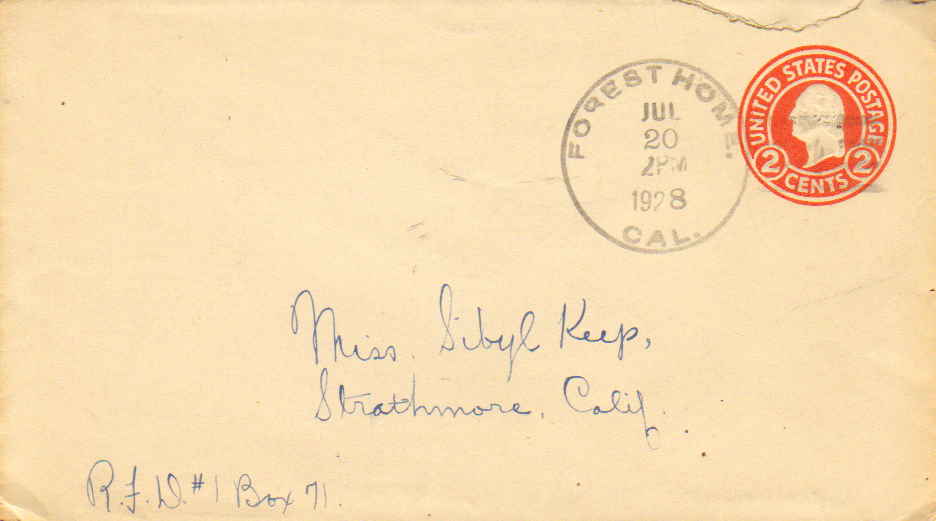 FOREST HOME.
JUL
20
2PM
1928
CAL.
UNITED STATES POSTAGE
2 CENTS 2
Miss. Sibyl Keep,
Strathmore, Calif.
R.F.D. #1 Box 71.